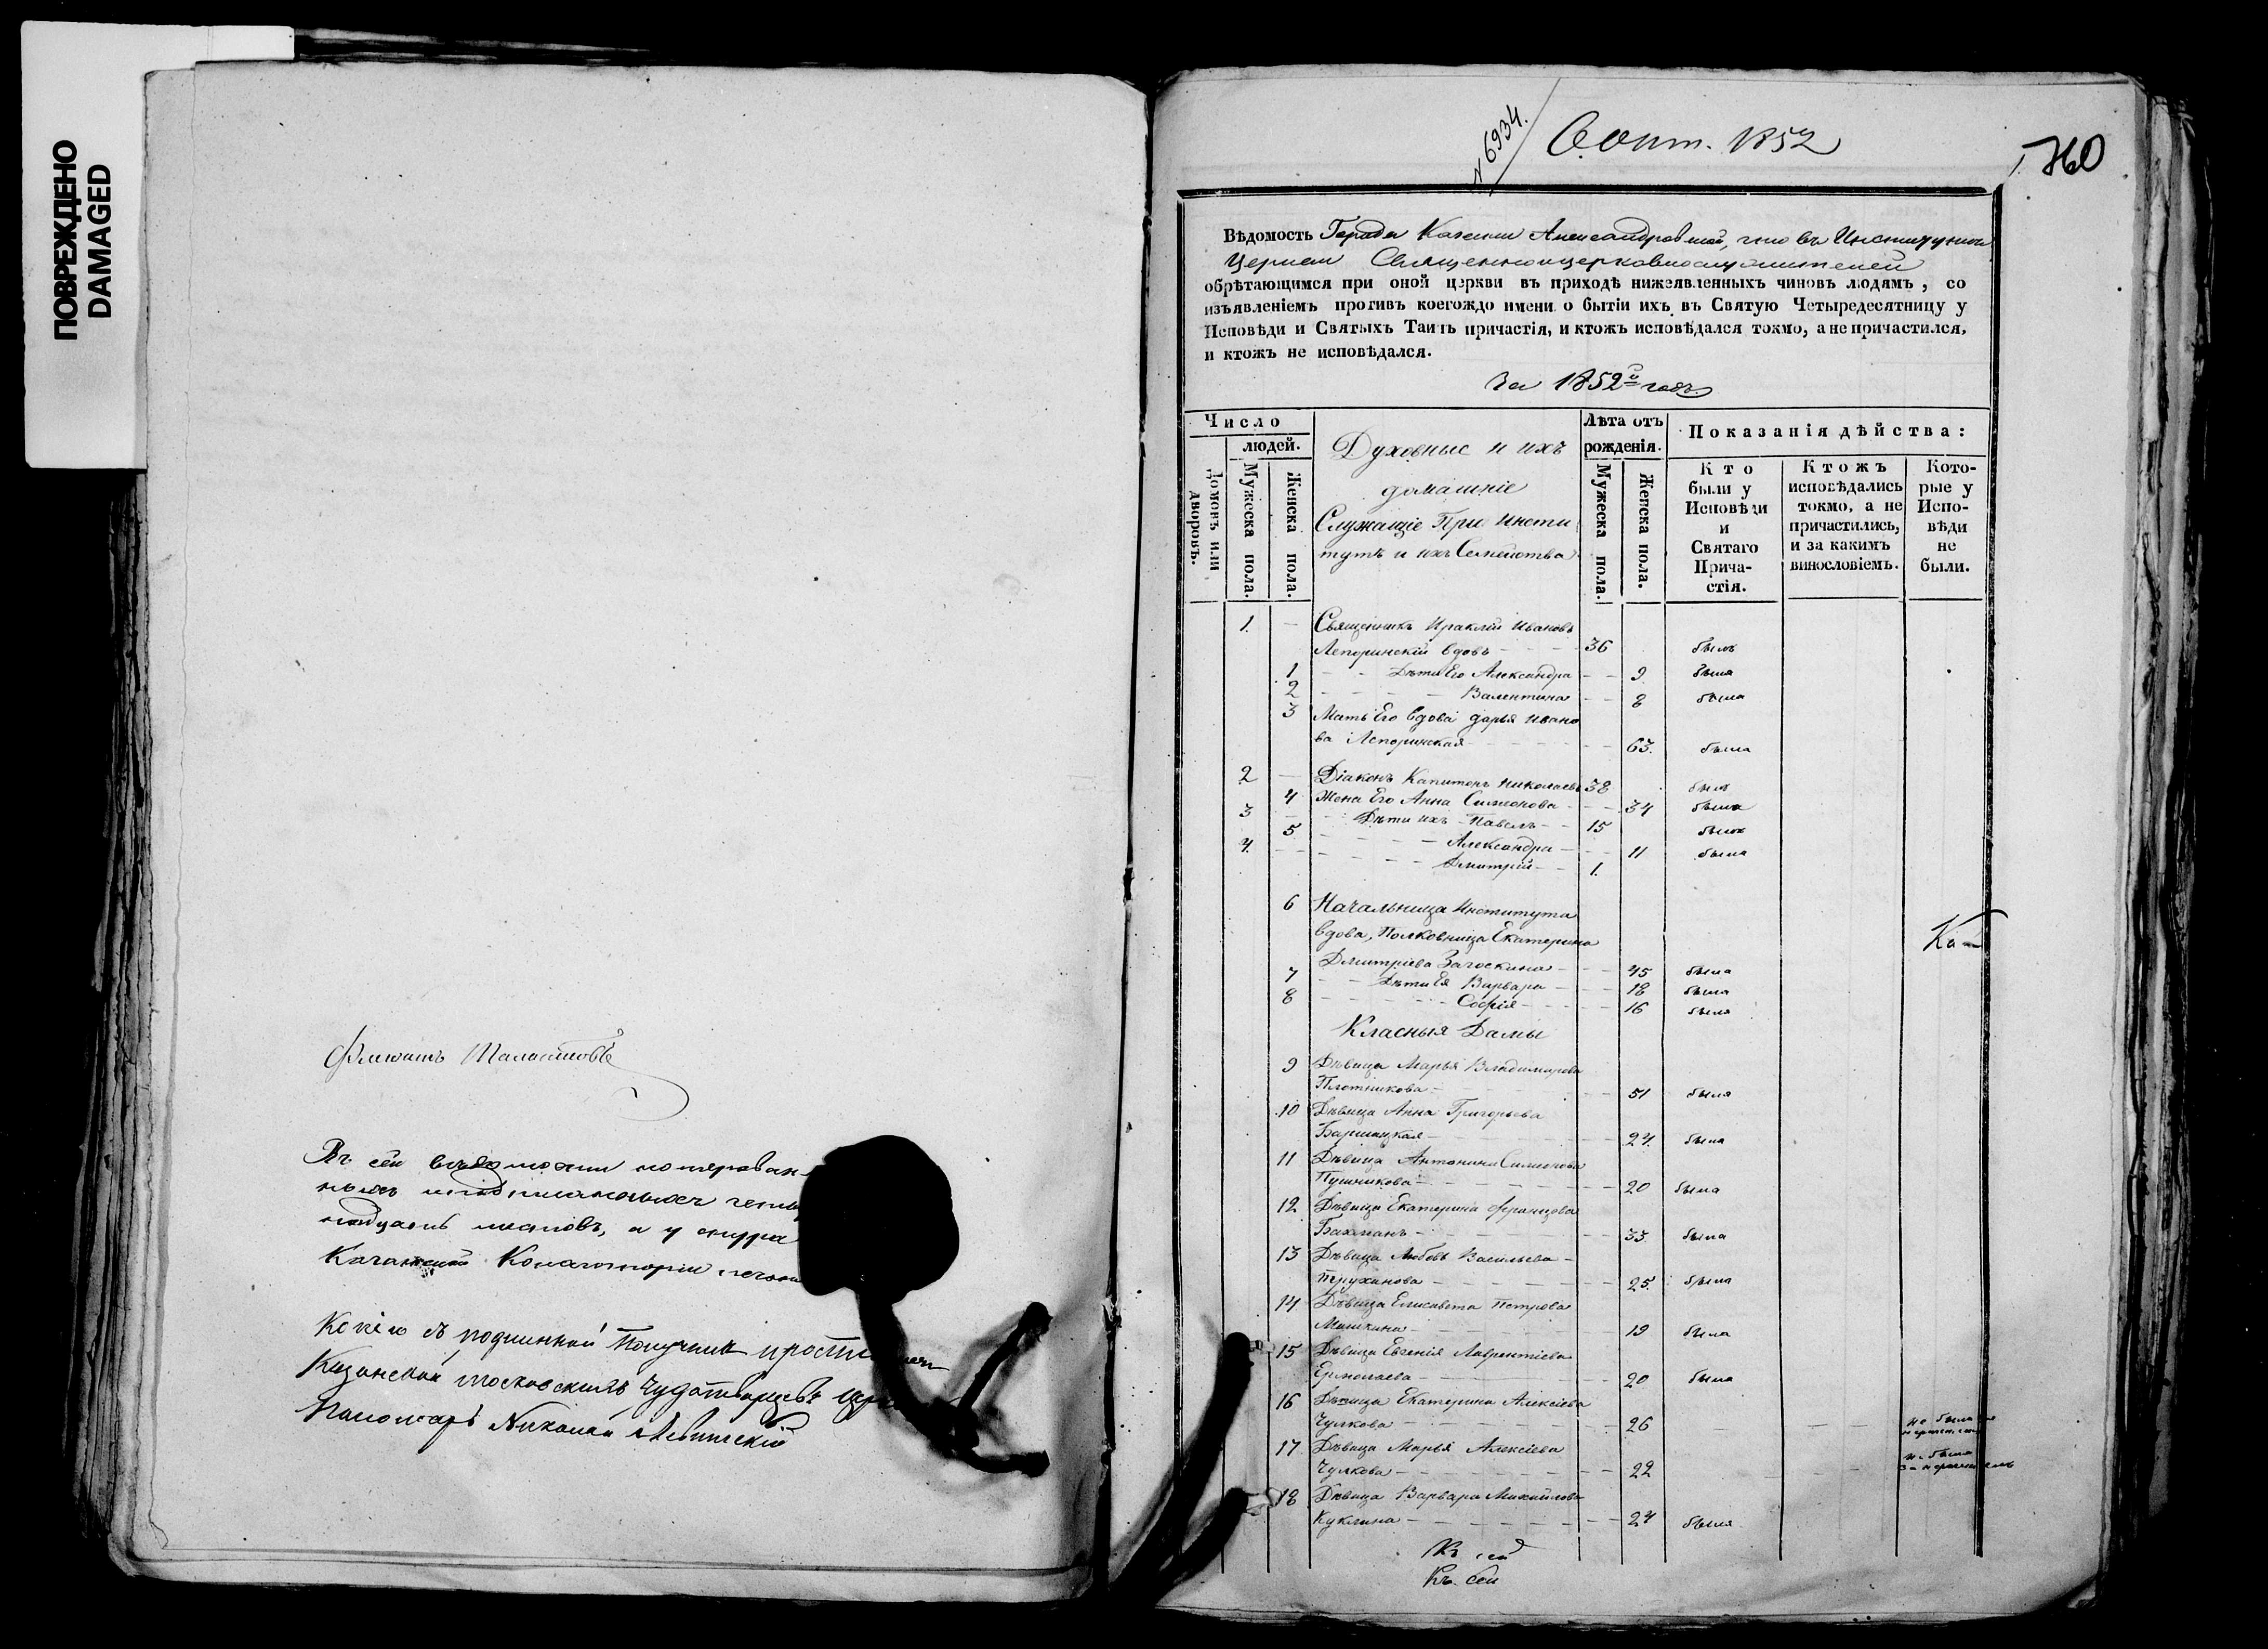 ПОВРЕЖДЕНО
DAMAGED
Въ сей
листовъ, а у
Казанской Консисторіи
Копію съ подлинной Получилъ
Казанской Московскихъ Чудотворцевъ
Пономарь Николай Левитскій
№ 6934.
6 Окт. 1852
760
Вѣдомость Города Казани Александровской, что въ Институтѣ
Церкви Священноицерковнослужителей
обрѣтающимся при оной церкви въ приходѣ нижеявленныхъ чиновъ людямъ, со
изъявленіемъ противъ коегождо имени о бытіи ихъ въ Святую Четыредесятницу у
Исповѣди и Святыхъ Таинъ причастія, и ктожъ исповѣдался токмо, а не причастился,
и ктожъ не исповѣдался.
За 1852й годъ.
Число
людей.
Домовъ или дворовъ.
Мужеска пола.
Женска пола.
Духовные и ихъ
домашніе
Служащіе При Инсти
тутѣ и ихъ Семейства
Лѣта отъ
рожденія.
Мужеска пола.
Женска пола.
Показанія дѣйства:
Кто
были у
Исповѣди
и
Святаго
Прича-
стія.
Ктожъ
исповѣдались
токмо, а не
причастились,
и за какимъ
винословіемъ.
Кото-
рые у
Испо-
вѣди
не
были.
1. Священникъ Ираклій Ивановъ
Лепоринскій вдовъ 36 былъ
1 Дѣти Его Александра 9 была
2 Валентина 8 была
3 Мать Его вдова дарья Ивано
ва Лепоринская 63. была
2 Діаконъ Капитонъ Николаевъ 38 былъ
4 Жена Его Анна Симеонова 34 была
3 Дѣти ихъ Павелъ 15 былъ
5 Александра 11 была
4. Дмитрій 1.
6 Начальница Института
вдова, Полковница Екатерина
Дмитріева Загоскина 45 была
7 Дѣти Ея Варвара 18 была
8 Софія 16 была
Ка
Класныя Дамы
9 Дѣвица Марья Владимірова
Плотникова 51 была
10 Дѣвица Анна Григорьева
24. была
11 Дѣвица Антонина Симеонова
Пушникова 20 была
12 Дѣвица Екатерина Францова
Бахманъ 33. была
13 Дѣвица Любовь Васильева
Трухинова 25. была
14 Дѣвица Елисавета Петрова
19 была
15 Дѣвица Евгенія Лаврентіева
Ермолаева 20 была
16 Дѣвица Екатерина Алексіева
Чулкова 26 не была
17 Дѣвица Марья Алексіева
Чулкова 22 не была
18 Дѣвица Варвара Михайлова
Куклина 24 была
Къ сей
Къ сей